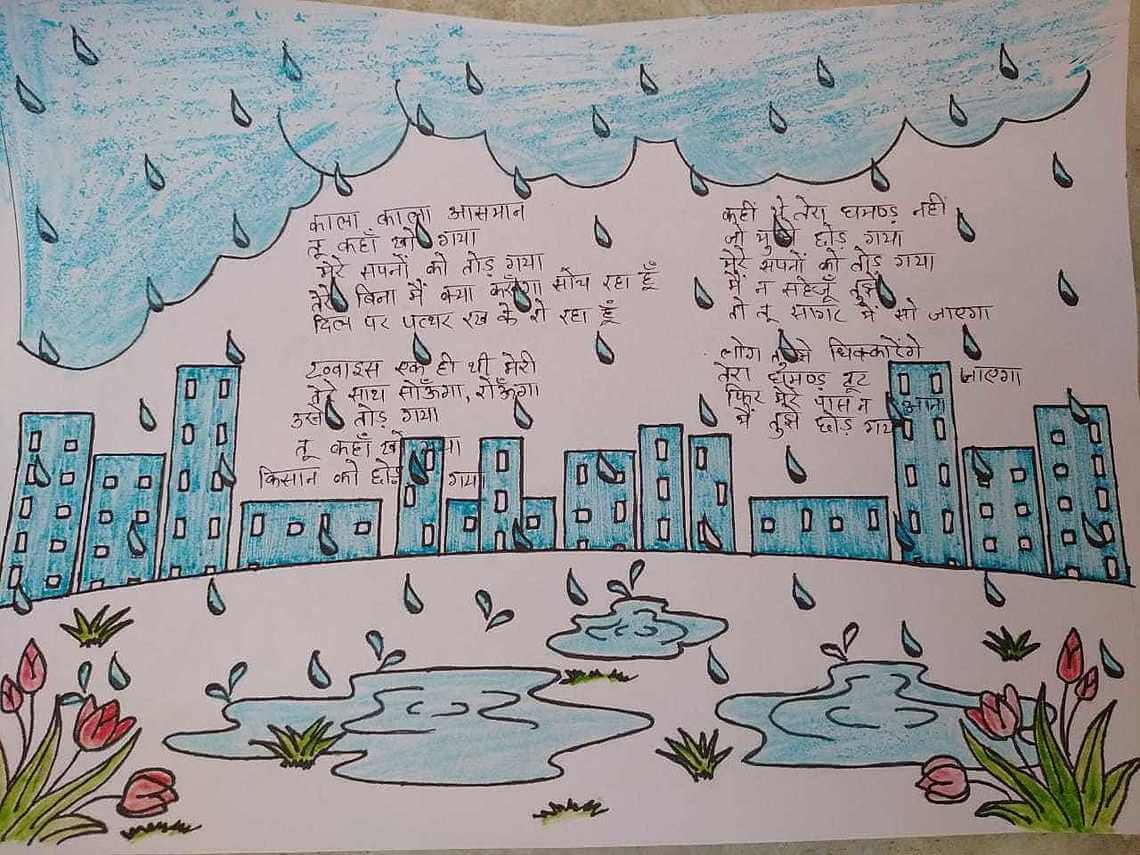 काला काला आसमान
तू कहाँ खो गया
मेरे सपनों को तोड़ गया
तेरे बिना मैं क्या करूँगा सोच रहा हूँ
दिल पर पत्थर रख के रो रहा हूँ
ख्वाइस एक ही थी मेरी
तेरे साथ सोऊँगा, रोऊँगा
उसे तोड़ गया
तू कहाँ खो गया
किसान को छोड़ गया
कहीं ये तेरा घमण्ड़ नहीं
जो मुझे छोड़ गया
मेरे सपनों को तोड़ गया
मैं न सहेजूँ तुझे
तो तू सागर में सो जाएगा
लोग तुझे धिक्कारेंगे
तेरा घमण्ड़ टूट जाएगा
फिर मेरे पास न आना
मैं तुझे छोड़ गया